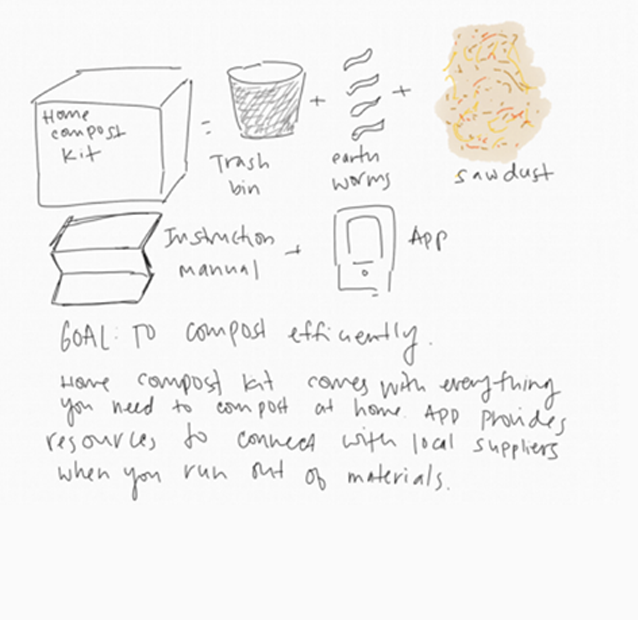 Home
compost
kit
=
Trash
bin
+
earth
worms
+
sawdust
Instruction
manual
+
App
GOAL: TO compost efficiently.
Home compost kit comes with everything
you need to compost at home. App provides
resources to connect with local suppliers
when you run out of materials.